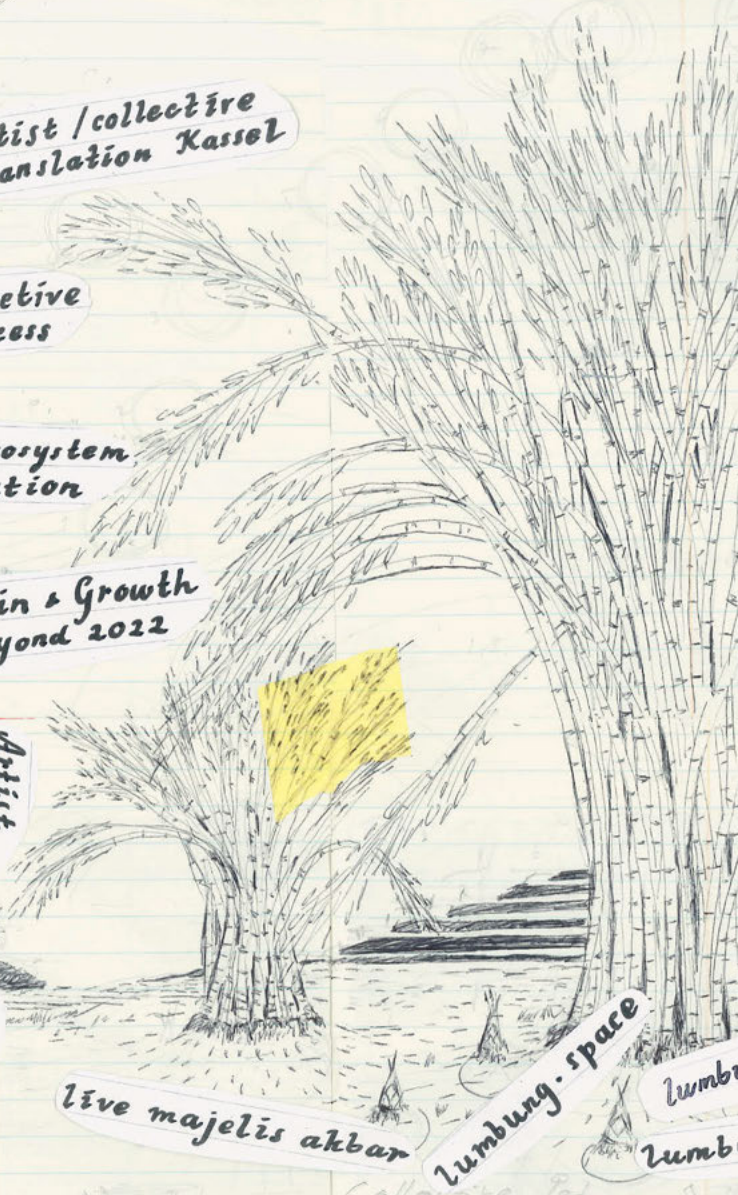 tist / collective
anslation Kassel
ective
cess
cosystem
ation
in & Growth
yond 2022
Artist
live majelis akbar
lumbung.space
lumbu
lumb